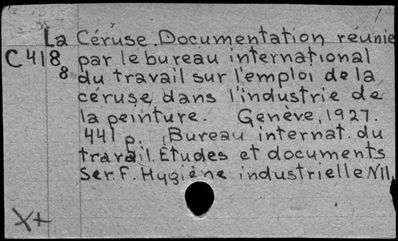 La Céruse. Documentation, réunie
C418 par le bureau international
8 du travail sur l'emploi de la
céruse, dans l'industrie de
la peinture. Genève, 1927.
441 p. (Bureau internat. du
travail. Études et documents
Ser. F. Hygiène industrielle N11
X+